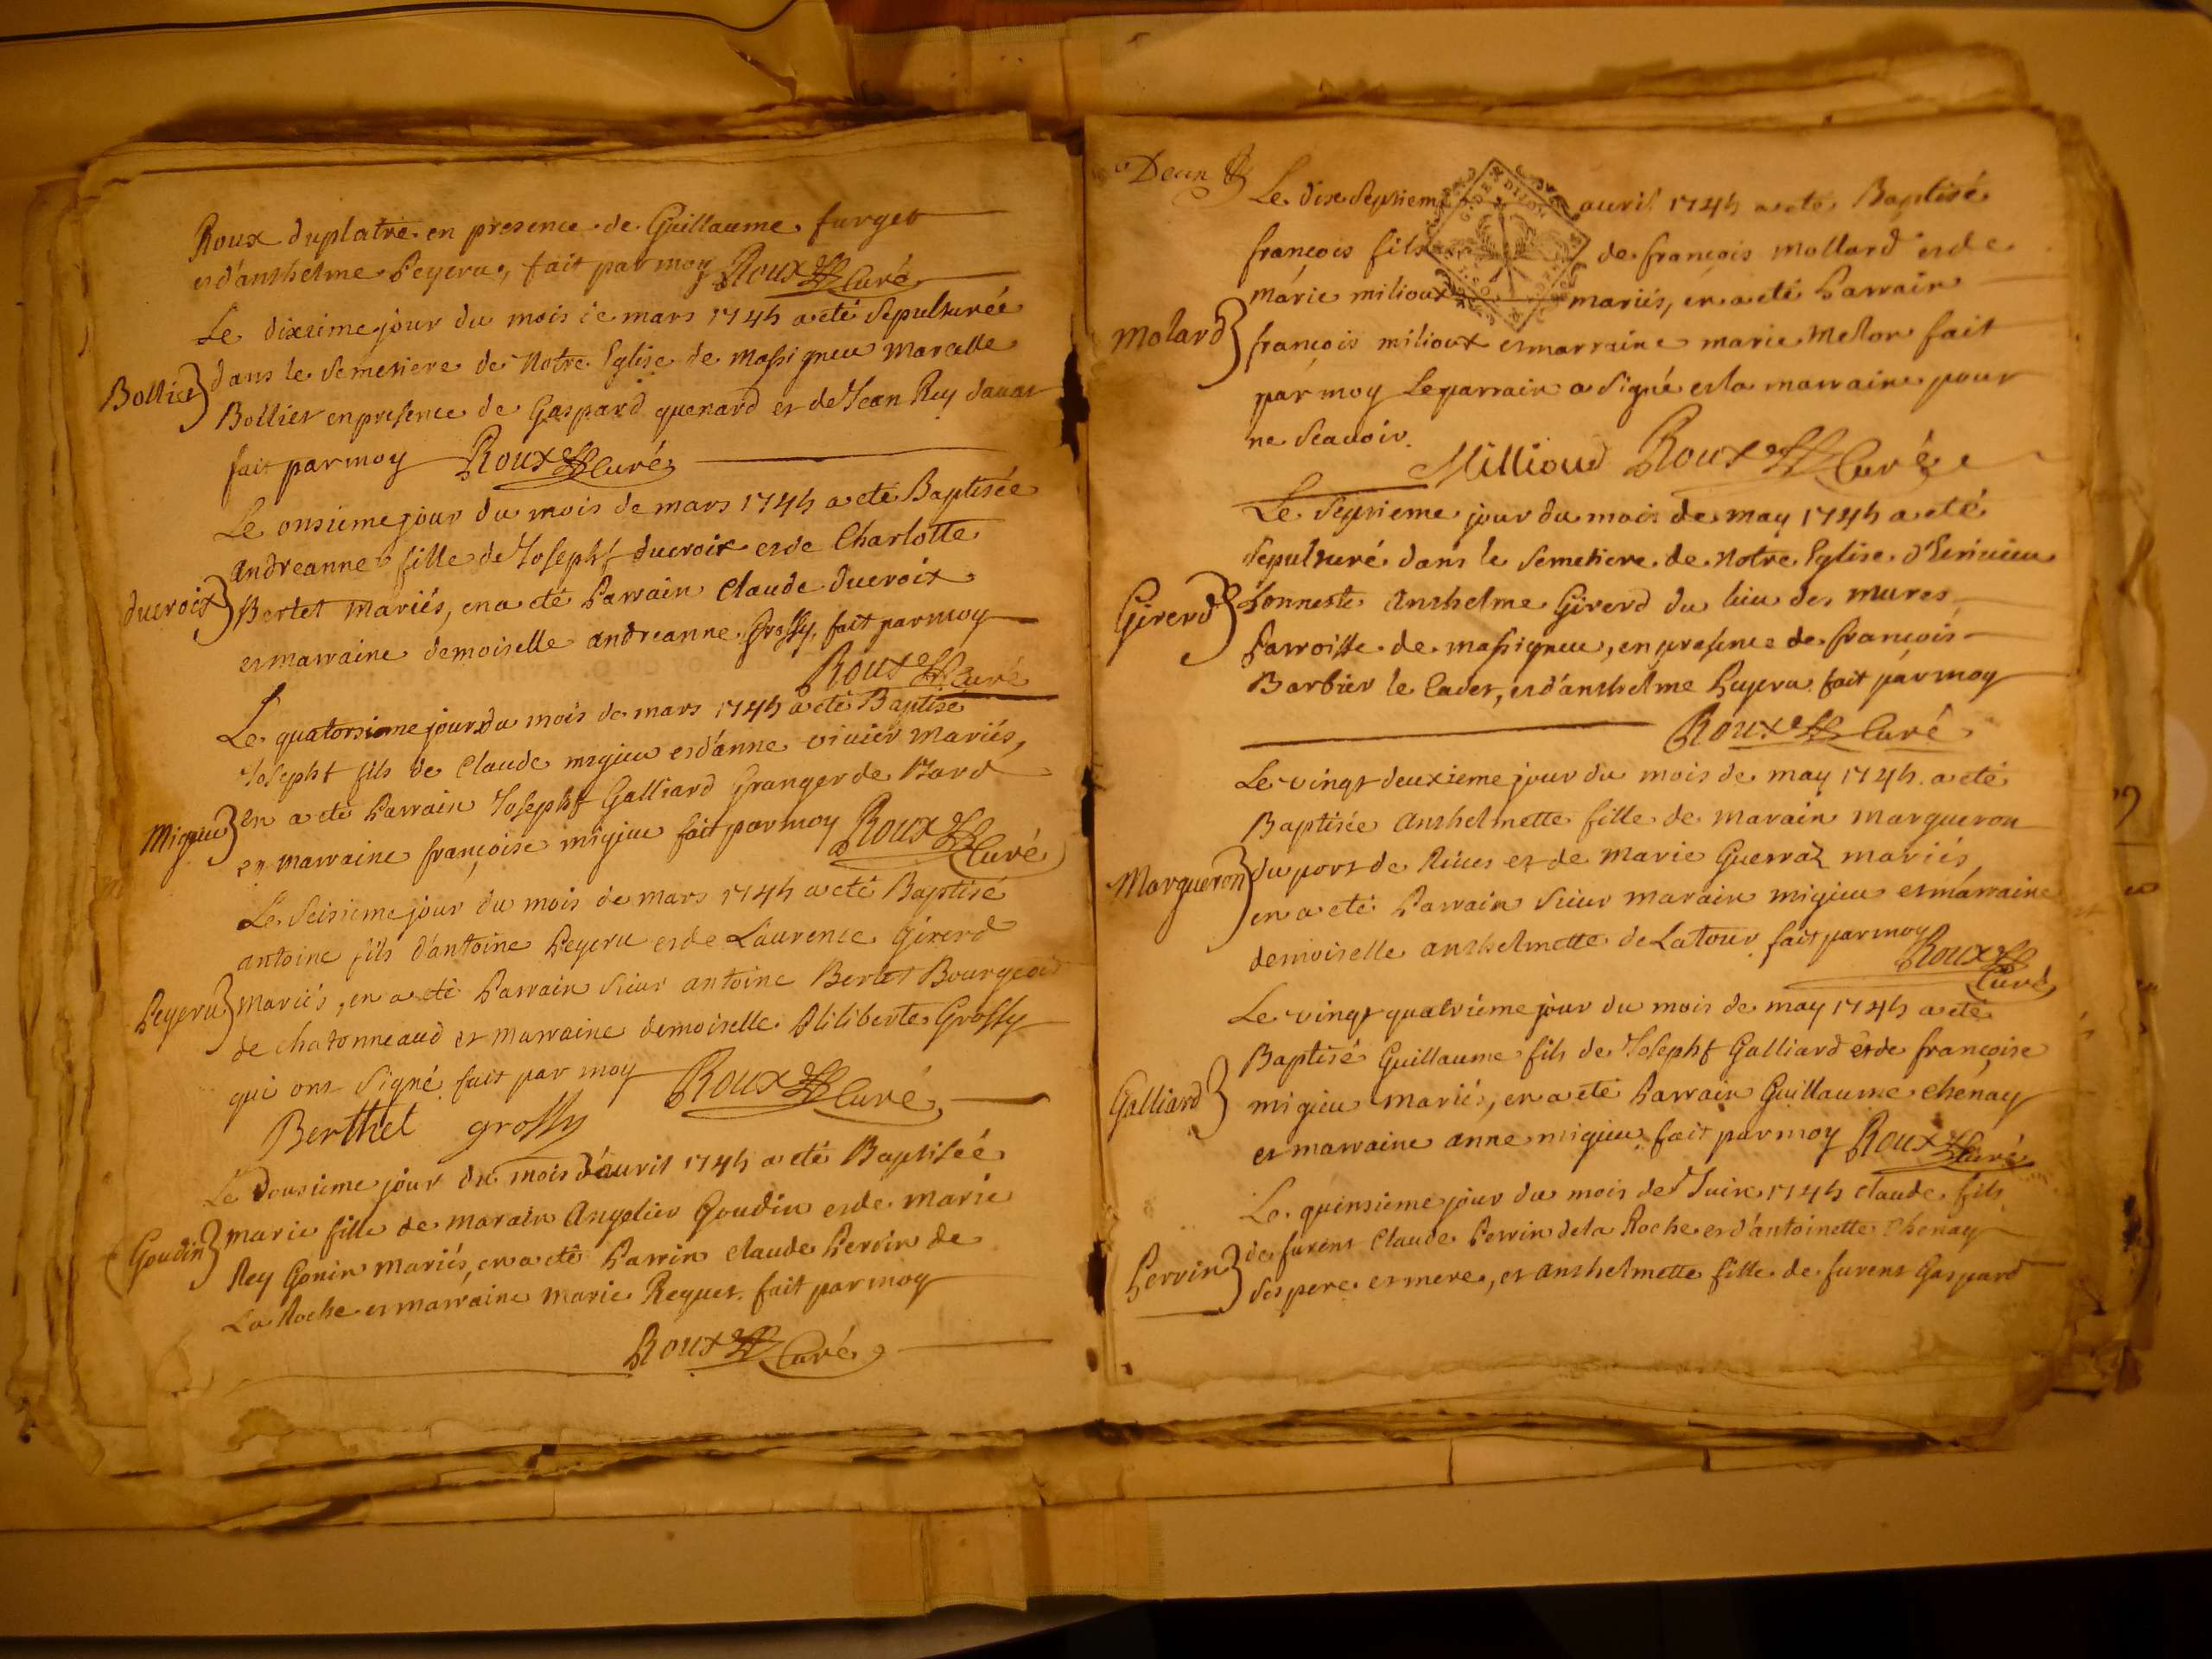 Roux duplatre en presence de Guillaume furget
et d'anthelme Peyeru, fait par moy Roux Curé
Le dixieme jour du mois de mars 1745 a eté Sepulturée
Bollier
dans le Semetiere de Notre Eglise de Massigneu Marcelle
Bollier en presence de Gaspard quenard et de Jean Rey
fait par moy Roux Curé
Le onsieme jour du mois de mars 1745 a eté Baptisée
andreanne fille de Joseph ducroix et de Charlotte
ducroix
Bertet Mariés, en a eté Parrain Claude ducroix
et marraine demoiselle andreanne Grossy, fait par moy
Roux Curé
Le quatorsieme jour du mois de mars 1745 a eté Baptisé
Joseph fils de Claude migieu et d'anne vivier Mariés,
Migieu
en a eté Parrain Joseph Galliard Granger de
et marraine françoise migieu fait par moy Roux Curé
Le Seisieme jour du mois de mars 1745 a eté Baptisé
antoine fils d'antoine Peyeru et de Laurence Girerd
Peyeru
Mariés, en a eté Parrain Sieur antoine Bertet Bourgeois
de chatonneaud et Marraine demoiselle Philiberte Grossy
qui ont Signé fait par moy Roux Curé
Berthet grossy
Le Dousieme jour du mois d'avril 1745 a eté Baptisée
Goudin
marie fille de marain Angelier Goudin et de Marie
Rey Gonin Mariés, en a eté Parrin Claude Perrin de
La Roche et marraine Marie Reques fait par moy
Roux Curé
Le dix Septiem avril 1745 a eté Baptisé
françois fils de françois Mollard et de
Marie milioux mariés, en a eté Parrain
Molard
françois milioux et marraine marie Mellon fait
par moy Le parrain a Signé et la marraine pour
ne Scavoir.
Millioud Roux Curé
Le Septieme jour du mois de may 1745 a eté
Sepulturé dans le Semetiere de Notre Eglise
Girerd
honneste Anthelme Girerd du lieu des mures
Parroisse de massigneu, en presence de françois
Barbier le Cadet, et d'anthelme Peyeru fait par moy
Roux Curé
Le vingt deuxieme jour du mois de may 1745 a eté
Baptisée Anthelmette fille de Marain Margueron
Margueron
du port de et de Marie Guerraz mariés,
en a eté Parrain Sieur marain migieu et marraine
demoiselle anthelmette de Latour fait par moy
Roux Curé
Le vingt quatrieme jour du mois de may 1745 a eté
Baptisé Guillaume fils de Joseph Galliard et de françoise
Galliard
migieu mariés, en a eté Parrain Guillaume Chenay
et marraine anne migieu fait par moy Roux Curé
Le quinsieme jour du mois de Juin 1745 Claude fils
Perrin
de furent Claude Perrin de la Roche et d'antoinette Chenay
Ses pere et mere, et anthelmette fille de furent Gaspard